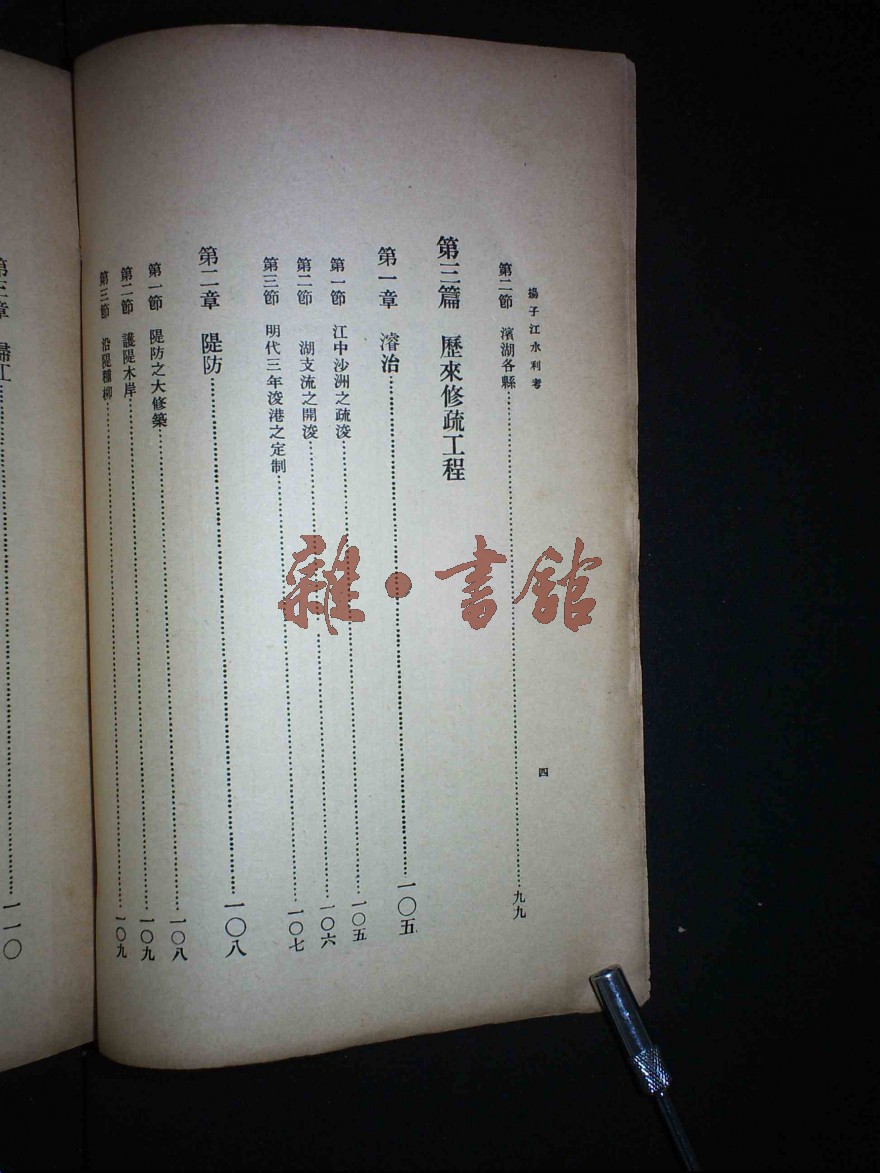 揚子江水利考
四
第二節 濱湖各縣……九九
第三篇 歷來修疏工程
第一章 濬治……一〇五
第一節 江中沙洲之疏浚……一〇五
第二節 湖支流之開浚……一〇六
第三節 明代三年浚港之定制……一〇七
第二章 隄防……一〇八
第一節 隄防之大修築……一〇八
第二節 護隄木岸……一〇九
第三節 沿隄種柳……一〇九
第三章 埽工……一一〇
雜·書舘